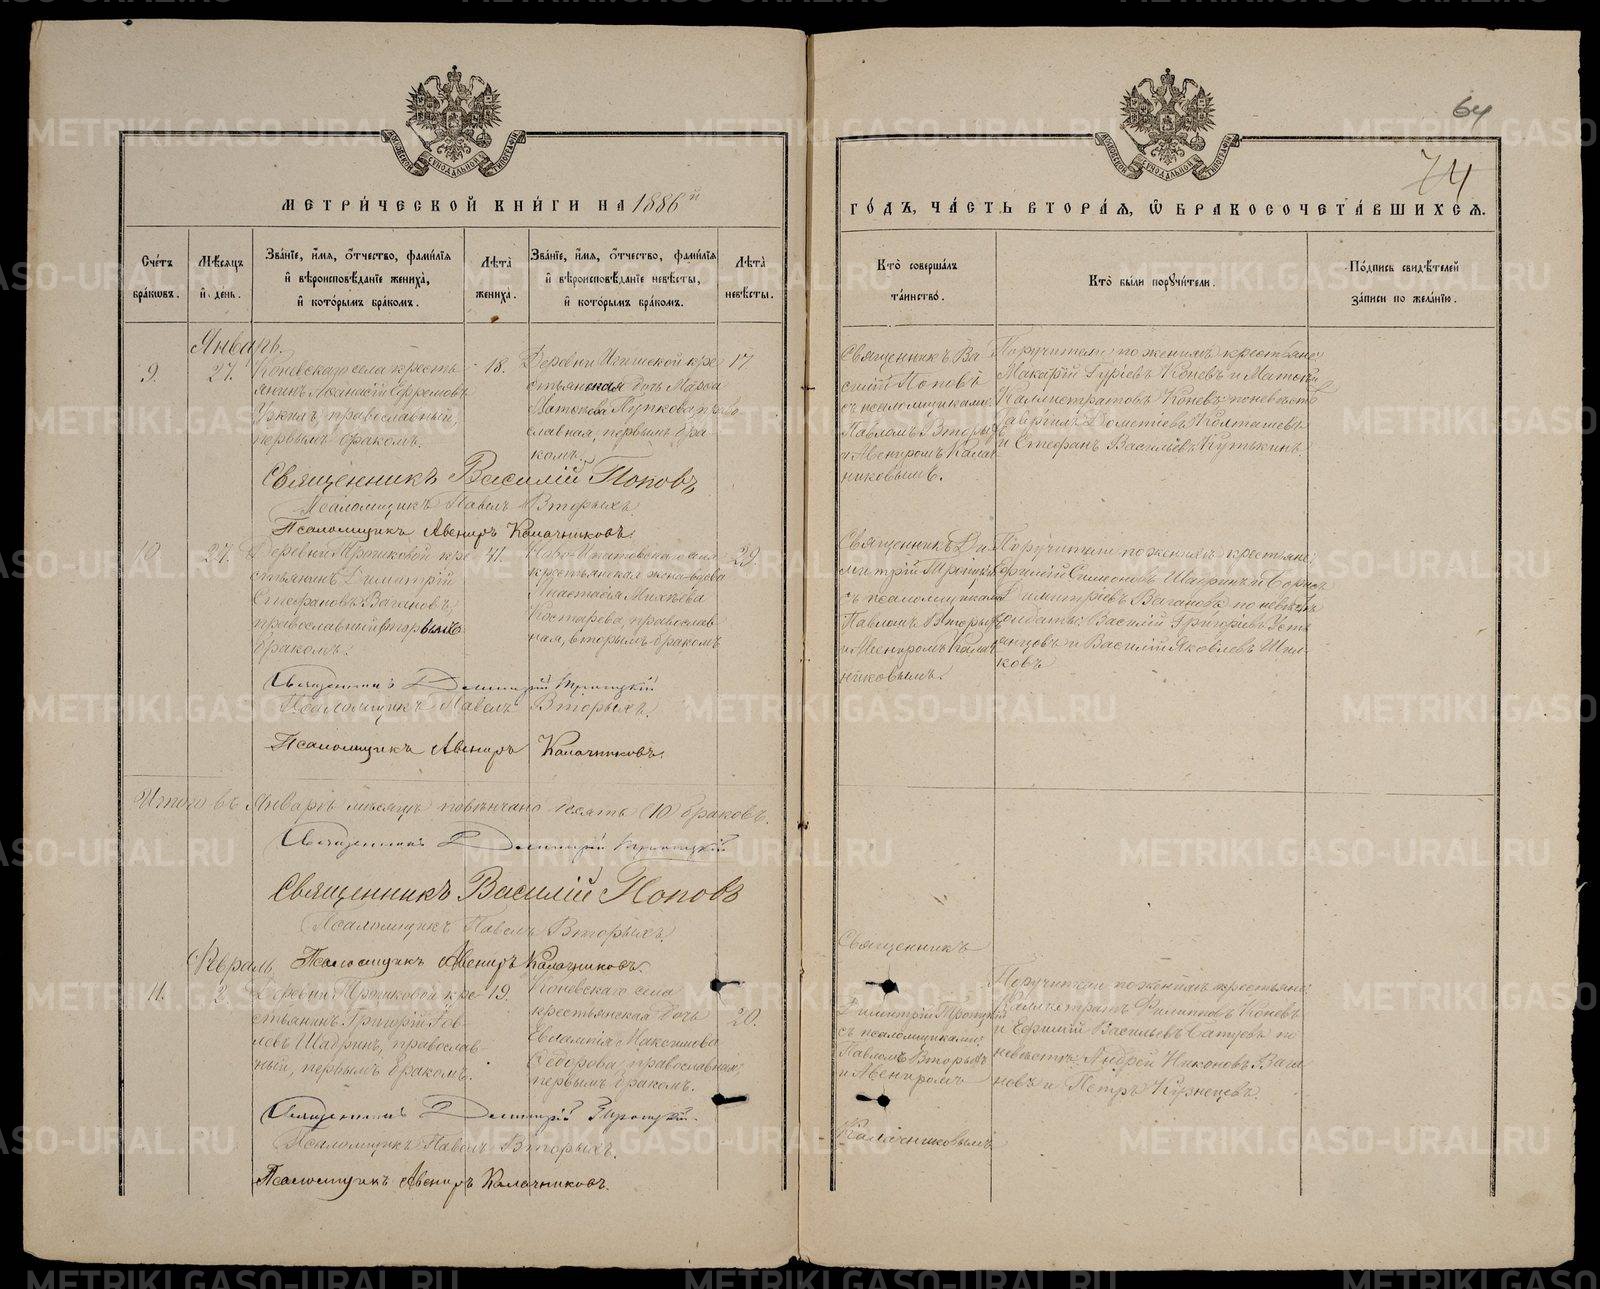 METRIKI.GASO-URAL.RU
64
74
МЕТРИЧЕСКОЙ КНИГИ НА 1886й
Счетъ браковъ.
Мѣсяцъ и день.
Званіе, имя, отчество, фамилія и вѣроисповѣданіе жениха, и которымъ бракомъ.
Лѣта жениха.
Званіе, имя, отчество, фамилія и вѣроисповѣданіе невѣсты, и которымъ бракомъ.
Лѣта невѣсты.
Январь.
9.
27.
Коневскаго села кресть
янинъ Аѳанасій Ефремовъ
православный,
первымъ бракомъ.
18.
Деревни
стьянская дочь
православная, первымъ бра
комъ.
17
Священникъ Василій Поповъ
Псаломщикъ Павелъ Вторыхъ.
Псаломщикъ Авениръ Калачниковъ.
10.
27.
кре
стьянинъ Димитрій
Стефановъ Вагановъ,
православный вторымъ
бракомъ.
41.
села
крестьянская жена вдова
Анастасія Михѣева
Костарева, православ
ная, вторымъ бракомъ
29.
Священникъ Димитрій Троицкій
Псаломщикъ Павелъ Вторыхъ.
Псаломщикъ Авениръ Калачниковъ.
Итого въ Январѣ мѣсяцѣ повѣнчано десять (10) браковъ.
Священникъ Димитрій Троицкій
Священникъ Василій Поповъ
Псаломщикъ Павелъ Вторыхъ.
Псаломщикъ Авениръ Калачниковъ.
11.
2.
кре
стьянинъ Григорій
Шадринъ, православ
ный, первымъ бракомъ.
19.
Коневскаго села
крестьянская дочь
Евлампія Максимова
Ѳедорова, православная,
первымъ бракомъ.
20.
Священникъ Димитрій Троицкій.
Псаломщикъ Павелъ Вторыхъ.
Псаломщикъ Авениръ Калачниковъ.
ГОДЪ, ЧАСТЬ ВТОРАЯ, Ѡ БРАКОСОЧЕТАВШИХСЯ.
Кто совершалъ таинство.
Кто были поручители.
Подпись свидѣтелей записи по желанію.
Священникъ Ва
силій Поповъ
съ псаломщиками
Павломъ Вторыхъ
и Авениромъ Калач
никовымъ.
Поручители по женихѣ крестьяне:
Макарій Гуріевъ Коневъ и
Каллистратовъ Коневъ; по невѣстѣ
Дометіевъ Колташевъ
и Стефанъ Васильевъ Кутькинъ.
Священникъ Ди
митрій Троицкій
съ псаломщиками
Павломъ Вторыхъ
и Авениромъ Калач
никовымъ.
Поручители по женихѣ крестьяне:
Симеоновъ Шадринъ и Борисъ
Димитріевъ Вагановъ по невѣстѣ
солдаты: Василій Григорьевъ Усть
янцовъ и Василій Яковлевъ
Священникъ
Димитрій Троицкій
съ псаломщиками:
Павломъ Вторыхъ
и Авениромъ
Калачниковымъ
Поручители по женихѣ крестьяне:
Каллистратъ Филипповъ Коневъ
и Ефимій Васильевъ по
невѣстѣ: Андрей Никоновъ Вага
новъ и Петръ Кузнецевъ.